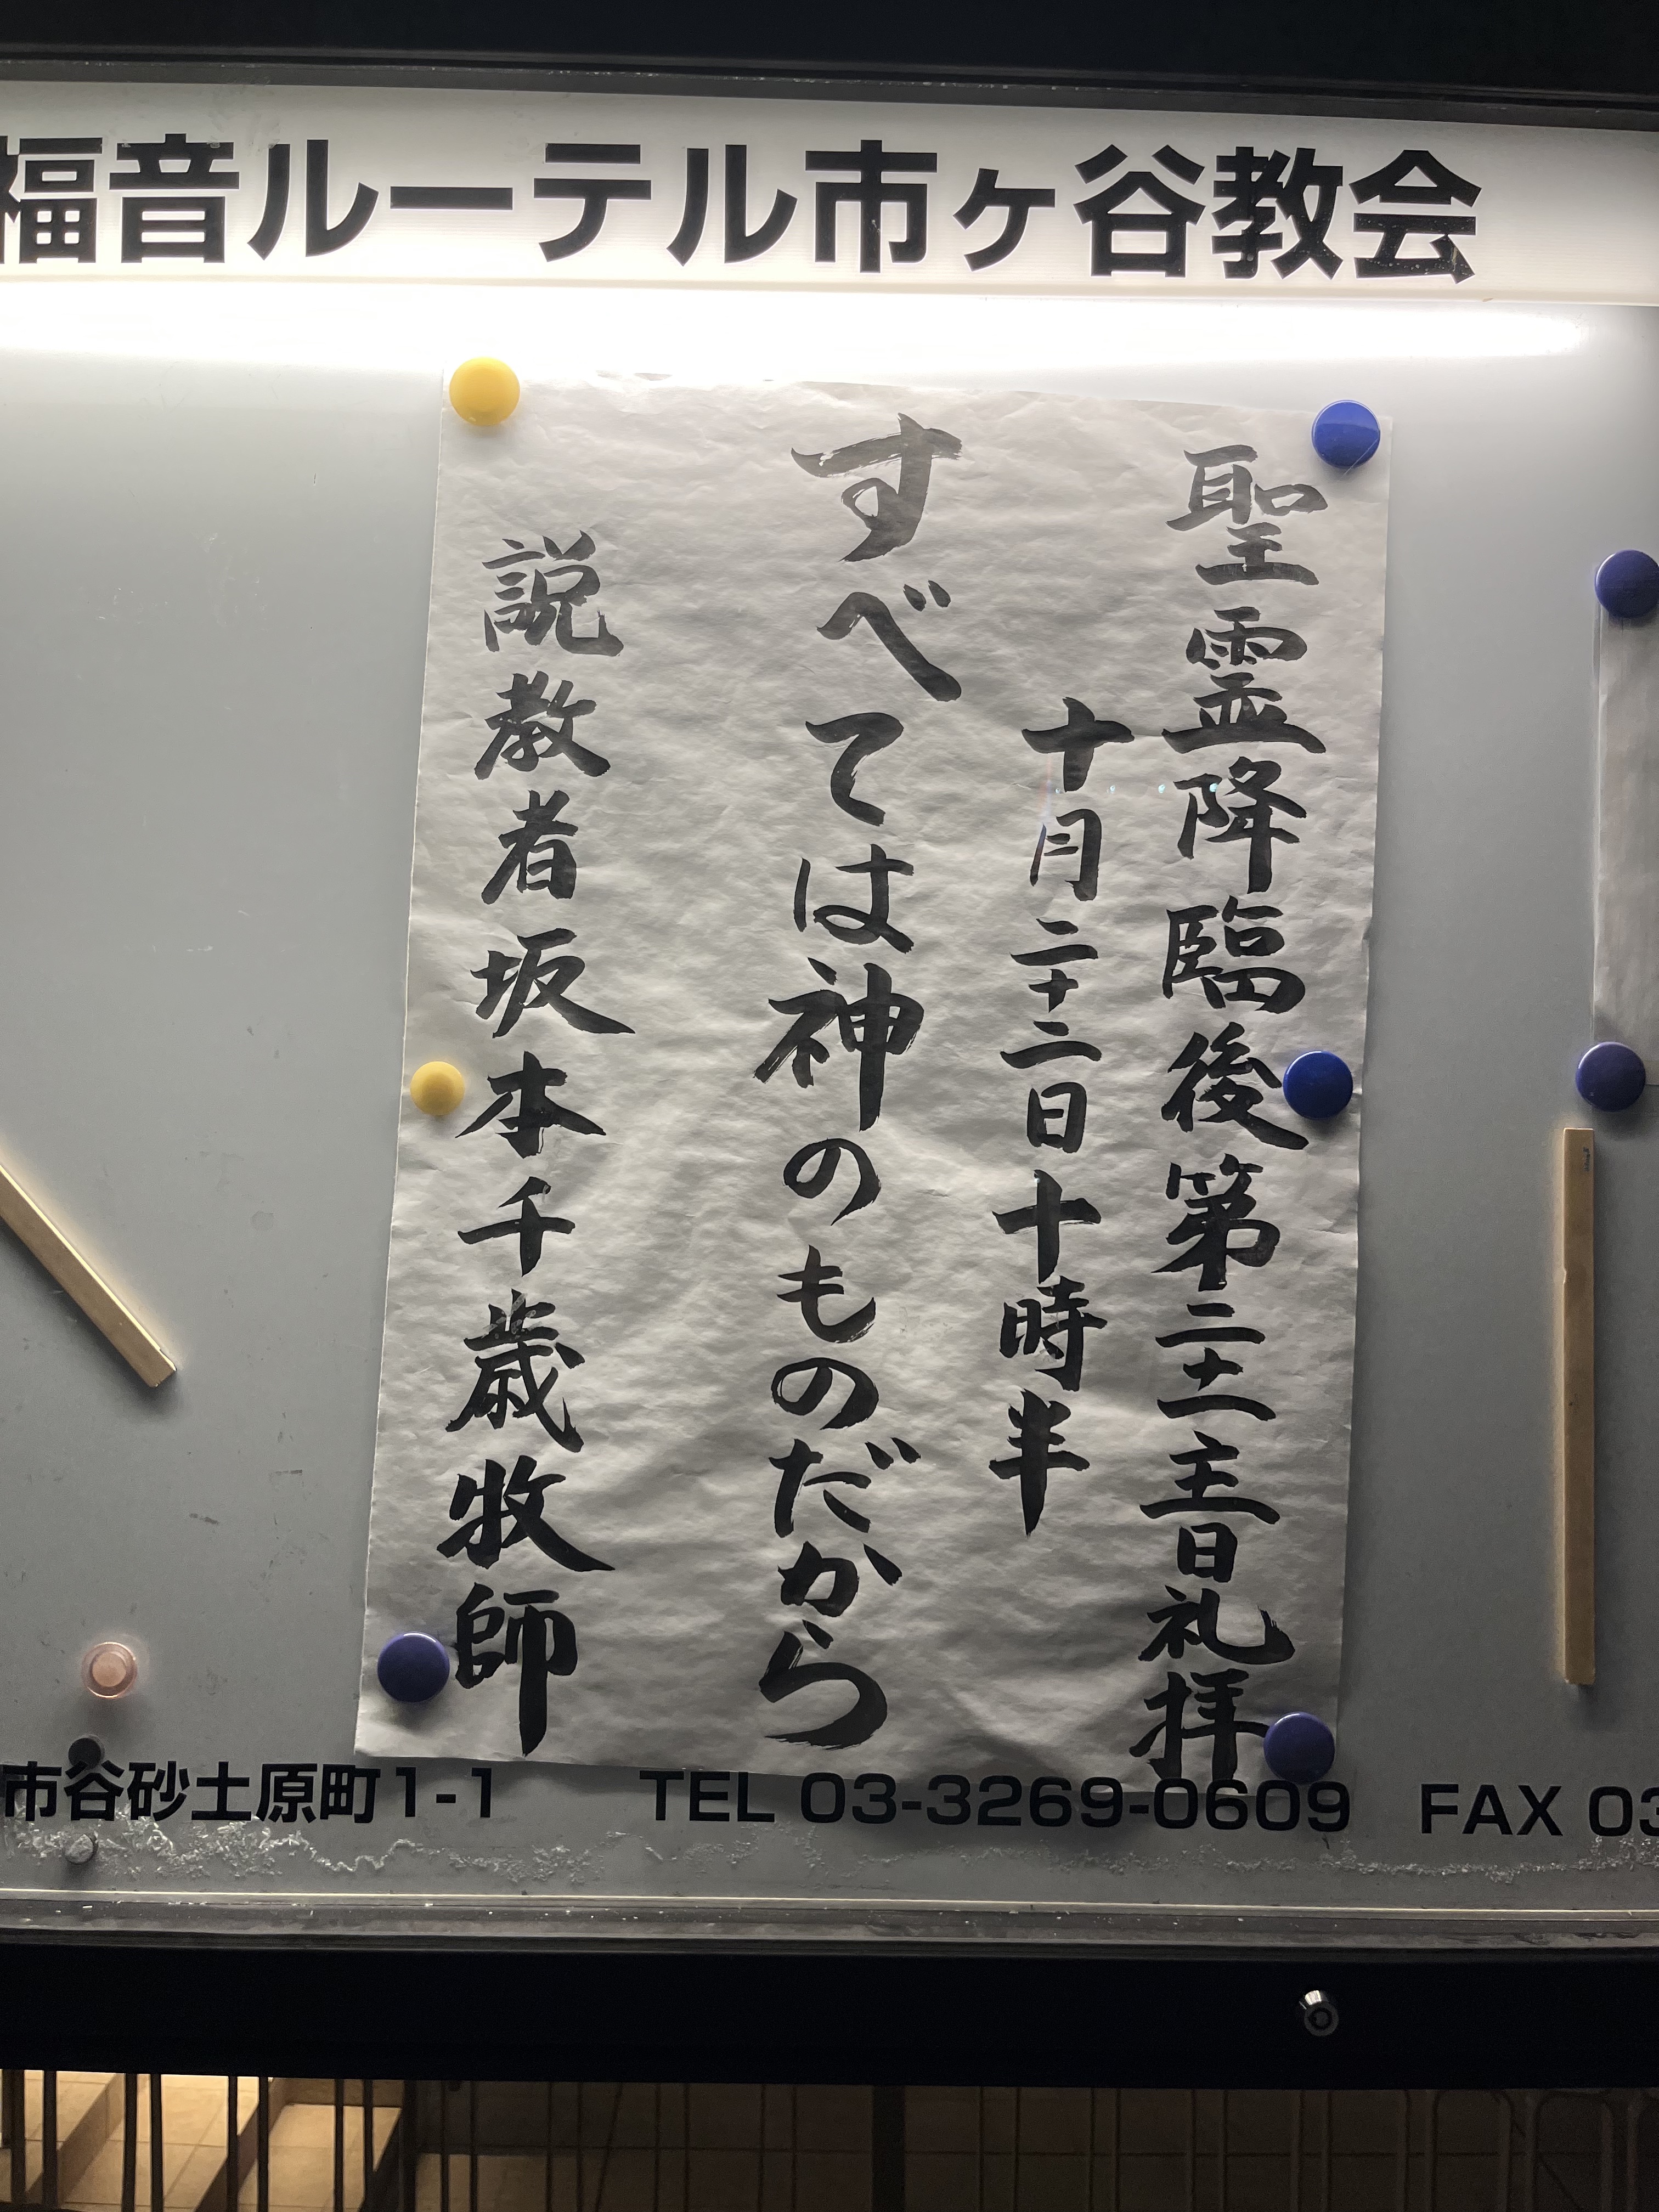 福音ルーテル市ヶ谷教会
聖霊降臨後第二十一主日礼拝
十月二十二日十時半
すべては神のものだから
説教者坂本千歳牧師
市谷砂土原町1-1 TEL 03-3269-0609 FAX 03